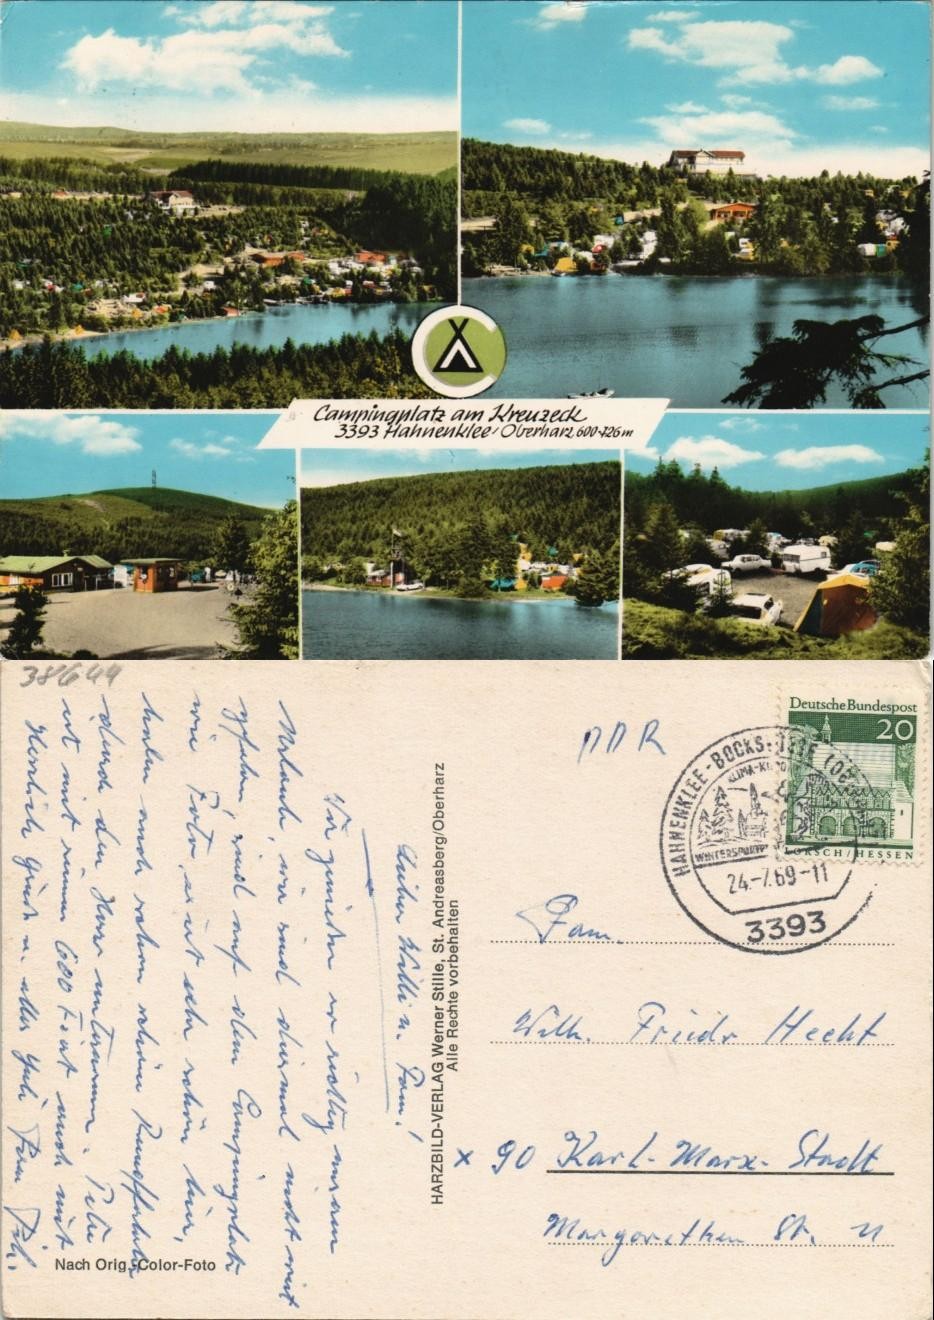 Campingplatz am Kreuzeck
3393 Hahnenklee/Oberharz 600-726 m
38/644
Lieber Willi u. Fam.!
Wir genießen so richtig unseren
Urlaub, wir sind diesmal nicht weit
gefahren, sind auf dem Campingplatz
wie Foto, es ist sehr schön hier,
haben auch schon schöne Rundfahrten
durch den Harz unternommen.
ist mit seinem 600 Fiat auch mit
Herzlich grüßt u. alles Gute Fam.
Nach Orig.-Color-Foto
HARZBILD-VERLAG Werner Stille, St. Andreasberg/Oberharz
Alle Rechte vorbehalten
DDR
Deutsche Bundespost
20
LORSCH/HESSEN
HAHNENKLEE-BOCKS
WINTERSPORT
24.-7.69-11
3393
Fam.
Wilh. Friedr Hecht
x 90 Karl-Marx-Stadt
Margarethen St. 11